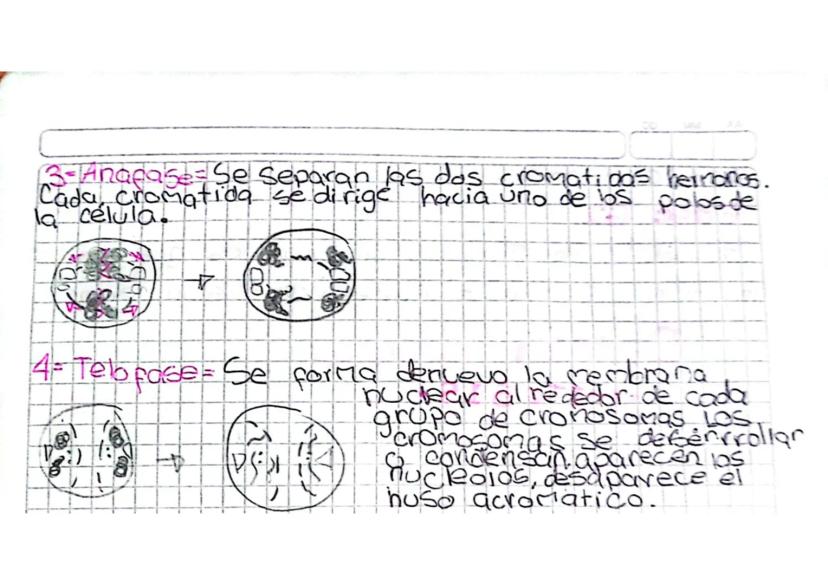 3-Anafase= Se separan las dos cromatidas hermanas.
Cada cromatida se dirige hacia uno de los polos de
la célula.
4= Telofase= Se forma denuevo la membrana
nuclear alrededor de cada
grupo de cromosomas Los
cromosomas se desenrrollan
o condensan. aparecen los
nucleolos, desaparece el
huso acromatico.